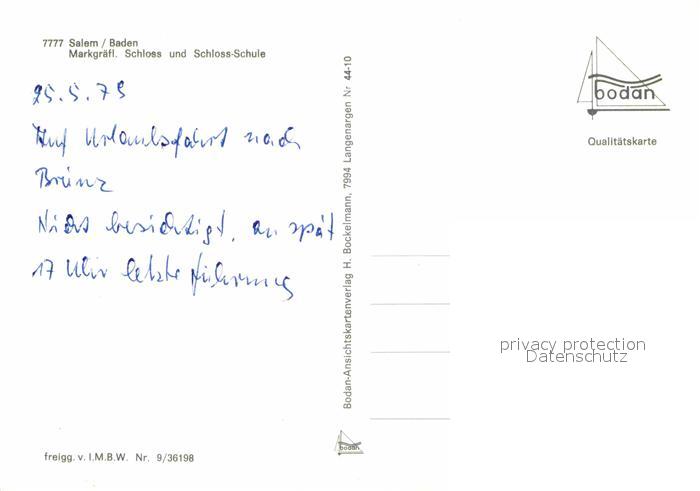 7777 Salem / Baden
Markgräfl. Schloss und Schloss-Schule
25.5.79
Auf Urlaubsfahrt nach
Brünz
Nicht besichtigt, zu spät
17 Uhr letzte Führung
freigg. v. I.M.B.W. Nr. 9/36198
Bodan-Ansichtskartenverlag H. Bockelmann, 7994 Langenargen Nr 44-10
bodan
bodan
Qualitätskarte
privacy protection
Datenschutz